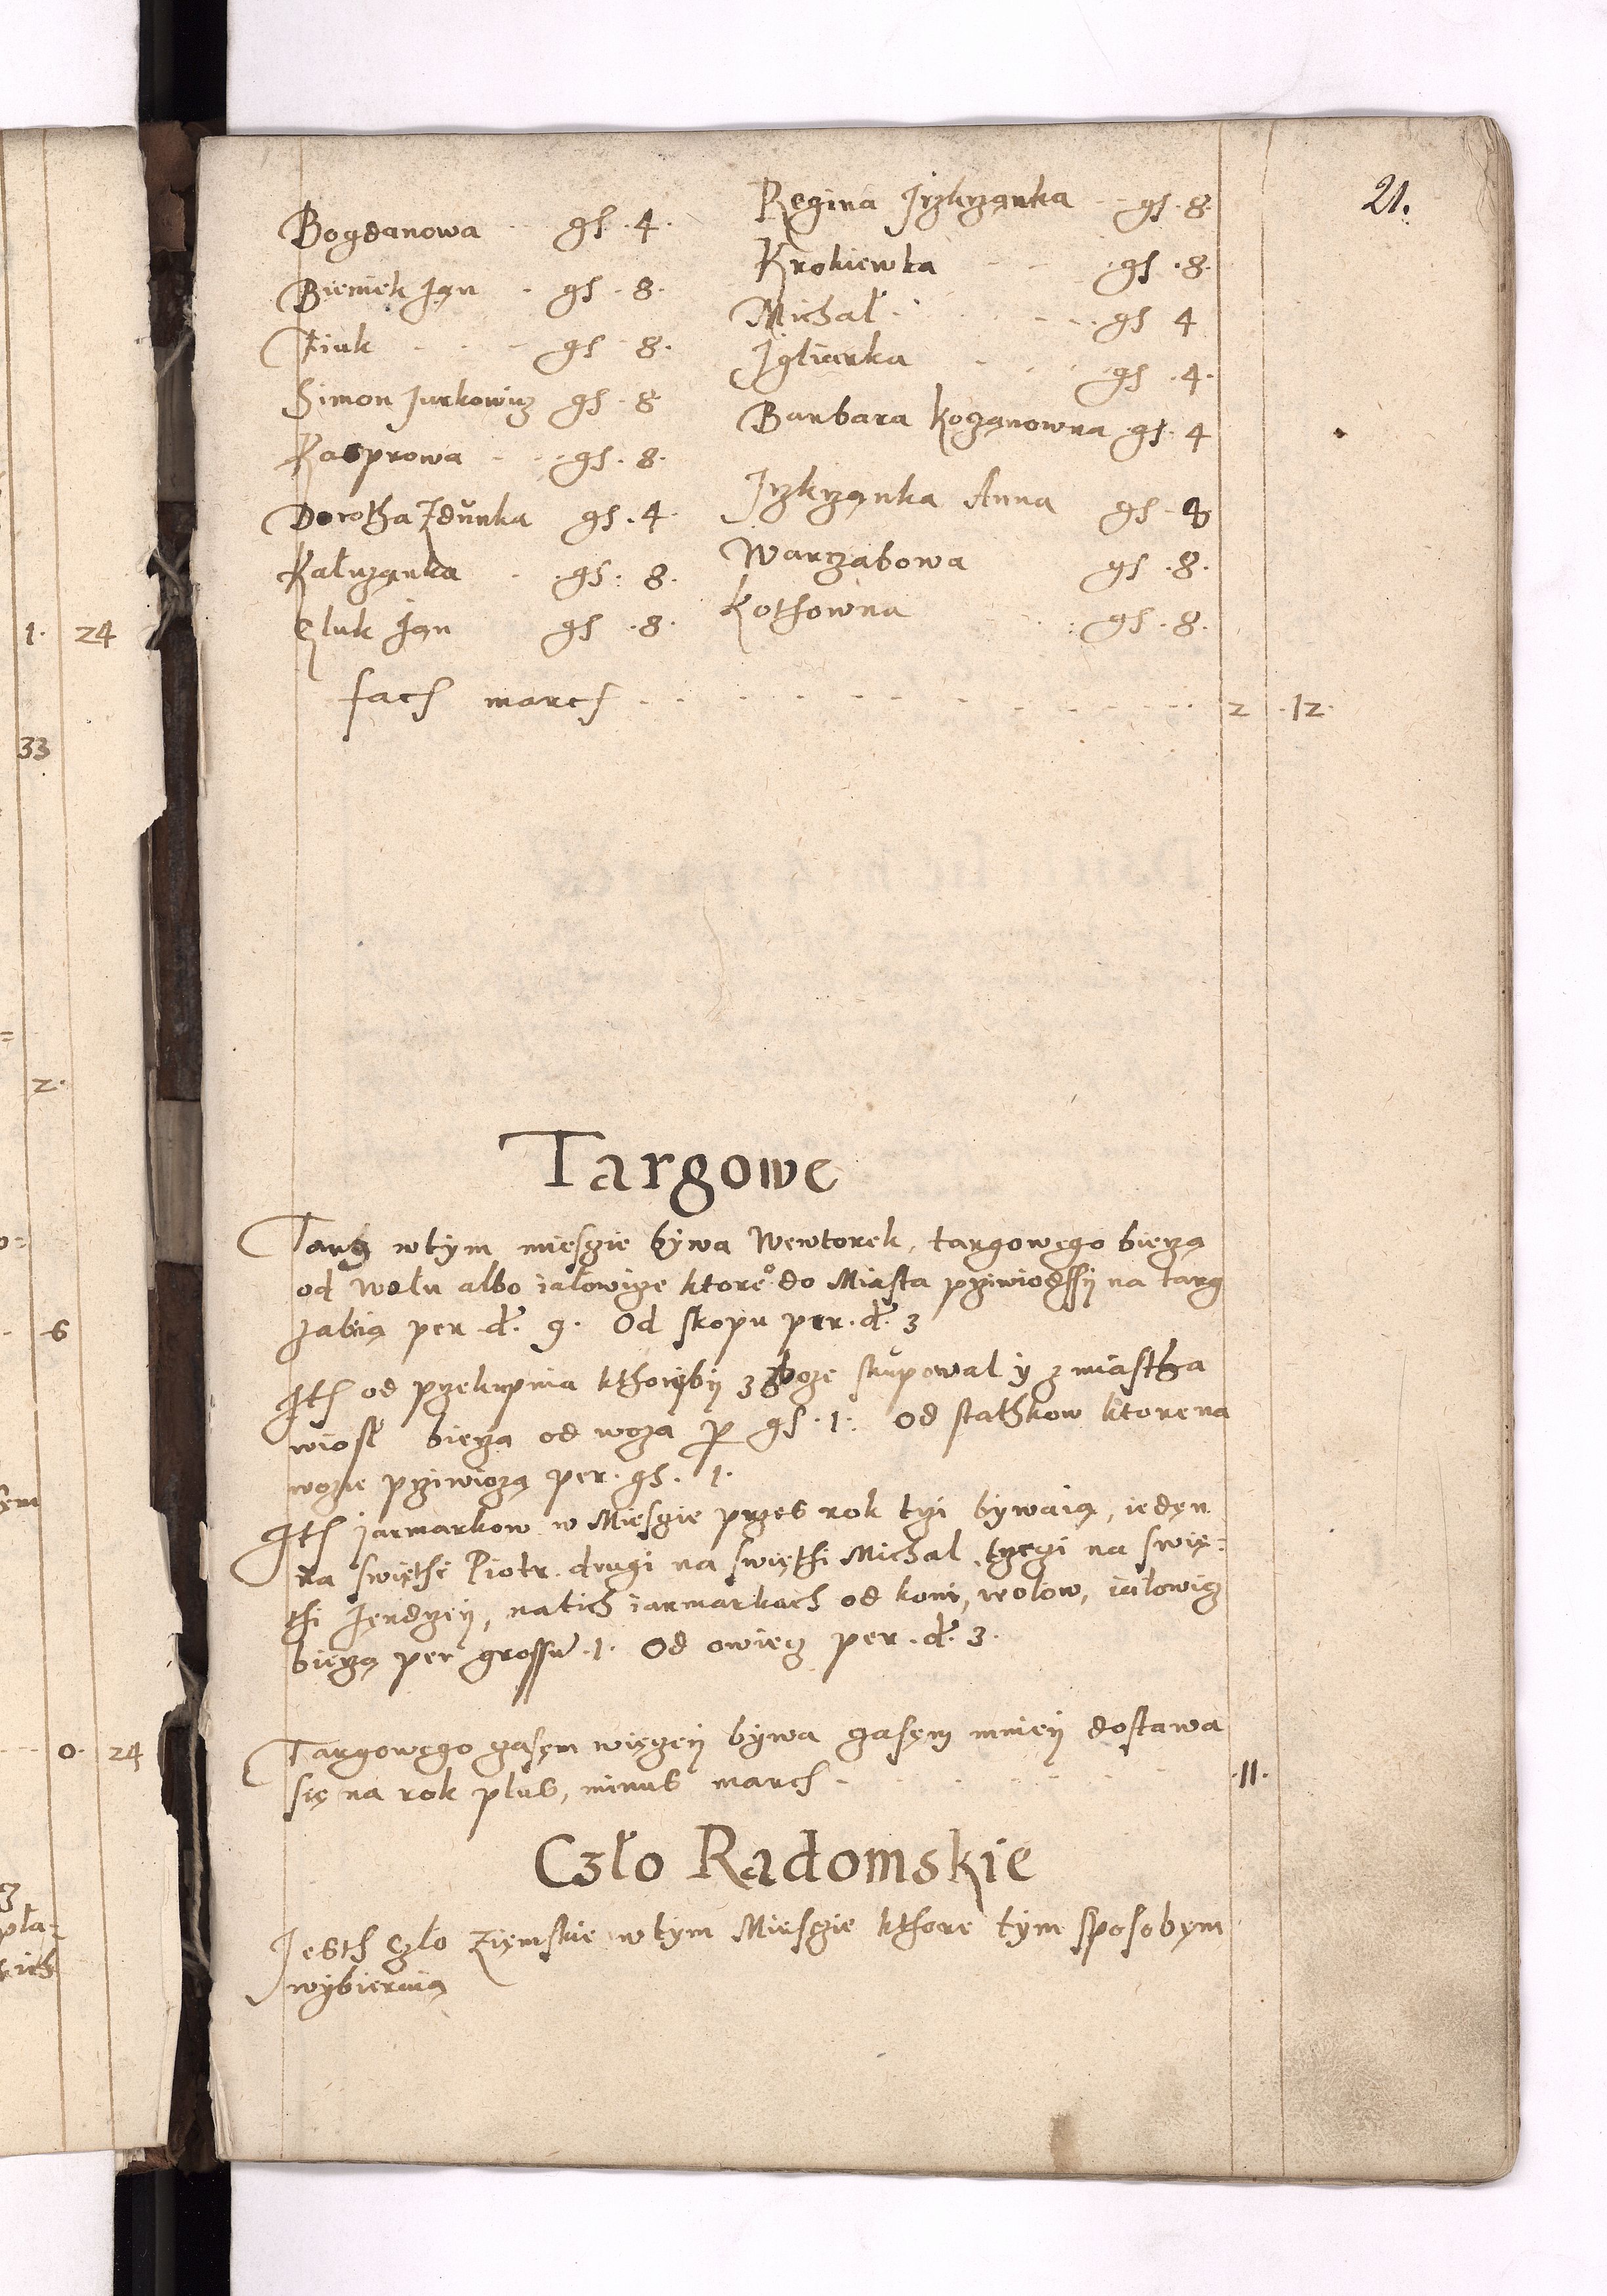 21.
Bogdanowa gs. 4.
Bieniek Jan gs. 8.
Fiuk gs 8.
Simon Jurkowicz gs. 8
Kasprowa gs. 8.
Dorotha Zdunka gs. 4.
Kałuząnka gs. 8.
Gluk Jan gs. 8.
Regina Jrzkrzanka gs. 8.
Krokiewka gs. 8.
Michał gs 4
Jgliarka gs. 4.
Barbara Kozanowna gs. 4
Jrzkrzanka Anna gs. 8
Warzabowa gs. 8.
Kothowna gs. 8.
fach march 2 . 12.
Targowe
Targ wtym miesczie bywa Wewtorek, targowego bierzą
od wołu albo iałowicze ktore do Miasta prziwiodssij na targ
zabią per d. 9. Od skopu per. d. 3
Ith od przekupnia kthorijbij zboze skupowal y z miastha
wiosł bierzą od woza p gs. 1. Od stathkow ktore na
wozie prziwiozą per. gs. 1.
Ith jarmarkow w Miesczie przes rok trzi bywaią, ieden
na swięthi Piotr. drugi na swięthi Michal, trzeczi na swię:
thi Jendrzeij, natich iarmarkach od koni, wolow, ialowicz
bierzą per grossu. 1. Od owiecz per. d. 3.
Targowego czasem więczeij bywa czasem mnieij dostawa
się na rok plus, minus march .11.
Czło Radomskie
Jesth czło Ziemskie wtym Miesczie kthore tym sposobem
wybieraią
1. 24
33
2.
6
0. 24